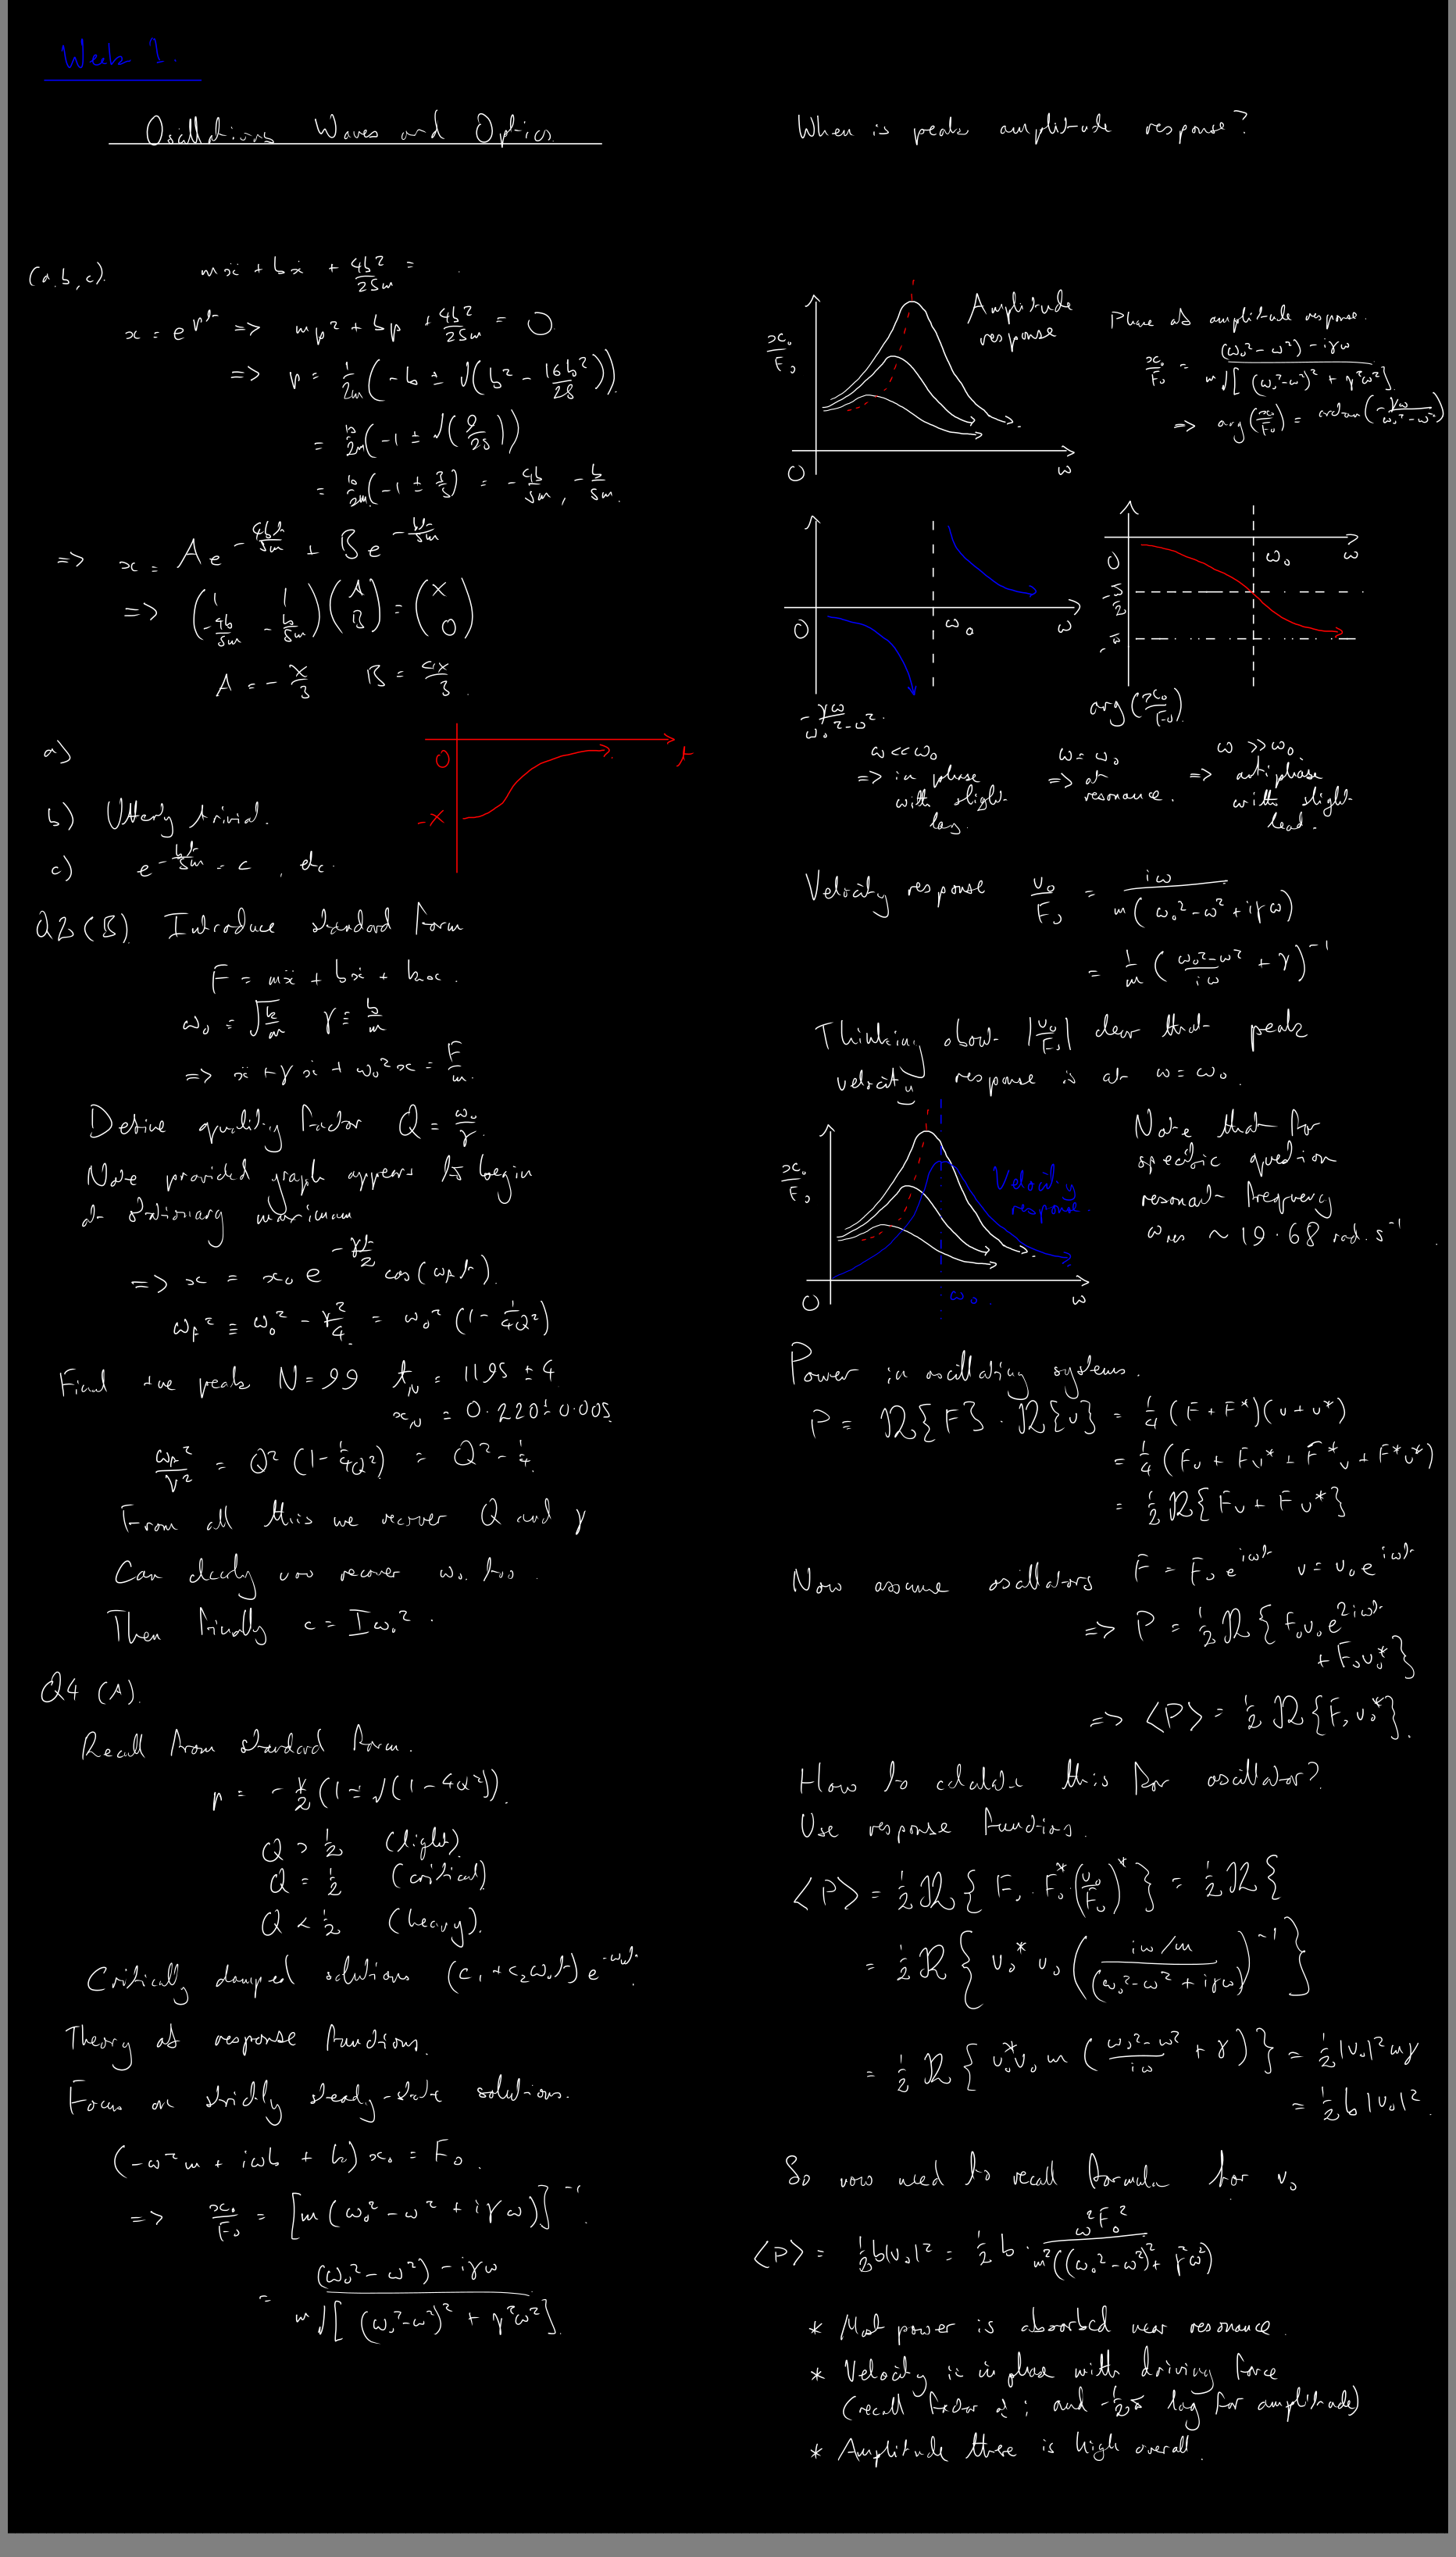 Week 1.
Oscillations Waves and Optics
(a, b, c). mẍ + bẋ + 4b²/25m =
x = e^{pt} => mp² + bp + 4b²/25m = 0
=> p = 1/2m (-b ± √(b² - 16b²/25))
= b/2m (-1 ± √(9/25))
= b/2m (-1 ± 3/5) = -4b/5m, -b/5m.
=> x = Ae^{-4bt/5m} + Be^{-bt/5m}
=> (1 1; -4b/5m -b/5m)(A; B) = (X; 0)
A = -X/3 B = 4X/3.
a)
0
t
-X
b) Utterly trivial.
c) e^{-bt/5m} = c, etc.
Q2 (B). Introduce standard form
F = mẍ + bẋ + kx.
ω₀ = √(k/m) γ ≡ b/m
=> ẍ + γẋ + ω₀²x = F/m.
Define quality factor Q = ω₀/γ.
Note provided graph appears to begin
at stationary maximum
=> x = x₀ e^{-γt/2} cos(ω_f t).
ω_f² ≡ ω₀² - γ²/4 = ω₀² (1 - 1/4Q²)
Final +ve peak N = 99 t_N = 1195 ± 4
x_N = 0.220 ± 0.005
ω_f²/γ² = Q² (1 - 1/4Q²) = Q² - 1/4.
From all this we recover Q and γ
Can clearly now recover ω₀ too.
Then finally c = Iω₀².
Q4 (A).
Recall from standard form.
p = -γ/2 (1 ± √(1 - 4Q²)).
Q > 1/2 (light)
Q = 1/2 (critical)
Q < 1/2 (heavy).
Critically damped solutions (c₁ + c₂ω₀t) e^{-ω₀t}.
Theory of response functions.
Focus on strictly steady-state solutions.
(-ω²m + iωb + k) x₀ = F₀.
=> x₀/F₀ = [m(ω₀² - ω² + iγω)]⁻¹.
= ((ω₀² - ω²) - iγω) / m√[(ω₀² - ω²)² + γ²ω²].
When is peak amplitude response?
x₀/F₀
Amplitude
response
0
ω
Phase of amplitude response.
x₀/F₀ = ((ω₀² - ω²) - iγω) / m√[(ω₀² - ω²)² + γ²ω²]
=> arg(x₀/F₀) = arctan(-γω/(ω₀² - ω²))
0
ω₀
ω
-γω/(ω₀² - ω²).
0
ω₀
ω
-π/2
-π
arg(x₀/F₀)
ω << ω₀
=> in phase
with slight
lag.
ω = ω₀
=> at
resonance.
ω >> ω₀
=> antiphase
with slight
lead.
Velocity response v₀/F₀ = iω / m(ω₀² - ω² + iγω)
= 1/m ((ω₀² - ω²)/iω + γ)⁻¹
Thinking about |v₀/F₀| clear that peak
velocity response is at ω = ω₀.
x₀/F₀
Velocity
response.
0
ω₀.
ω
Note that for
specific question
resonant frequency
ω_res ~ 19.68 rad.s⁻¹.
Power in oscillating systems.
P = ℜ{F} · ℜ{v} = 1/4 (F + F*)(v + v*)
= 1/4 (Fv + Fv* + F*v + F*v*)
= 1/2 ℜ{Fv + Fv*}
Now assume oscillators F = F₀e^{iωt} v = v₀e^{iωt}
=> P = 1/2 ℜ{F₀v₀e^{2iωt}
+ F₀v₀*}
=> ⟨P⟩ = 1/2 ℜ{F₀v₀*}.
How to calculate this for oscillator?
Use response functions.
⟨P⟩ = 1/2 ℜ{F₀ · F₀* (v₀/F₀)*} = 1/2 ℜ{
= 1/2 ℜ{v₀* v₀ ((iω/m)/(ω₀² - ω² + iγω))⁻¹}
= 1/2 ℜ{v₀*v₀ m ((ω₀² - ω²)/iω + γ)} = 1/2 |v₀|² mγ
= 1/2 b|v₀|².
So now need to recall formula for v₀
⟨P⟩ = 1/2 b|v₀|² = 1/2 b · ω²F₀² / m²((ω₀² - ω²)² + γ²ω²)
* Most power is absorbed near resonance.
* Velocity is in phase with driving force
(recall factor of i and -1/2π lag for amplitude)
* Amplitude there is high overall.